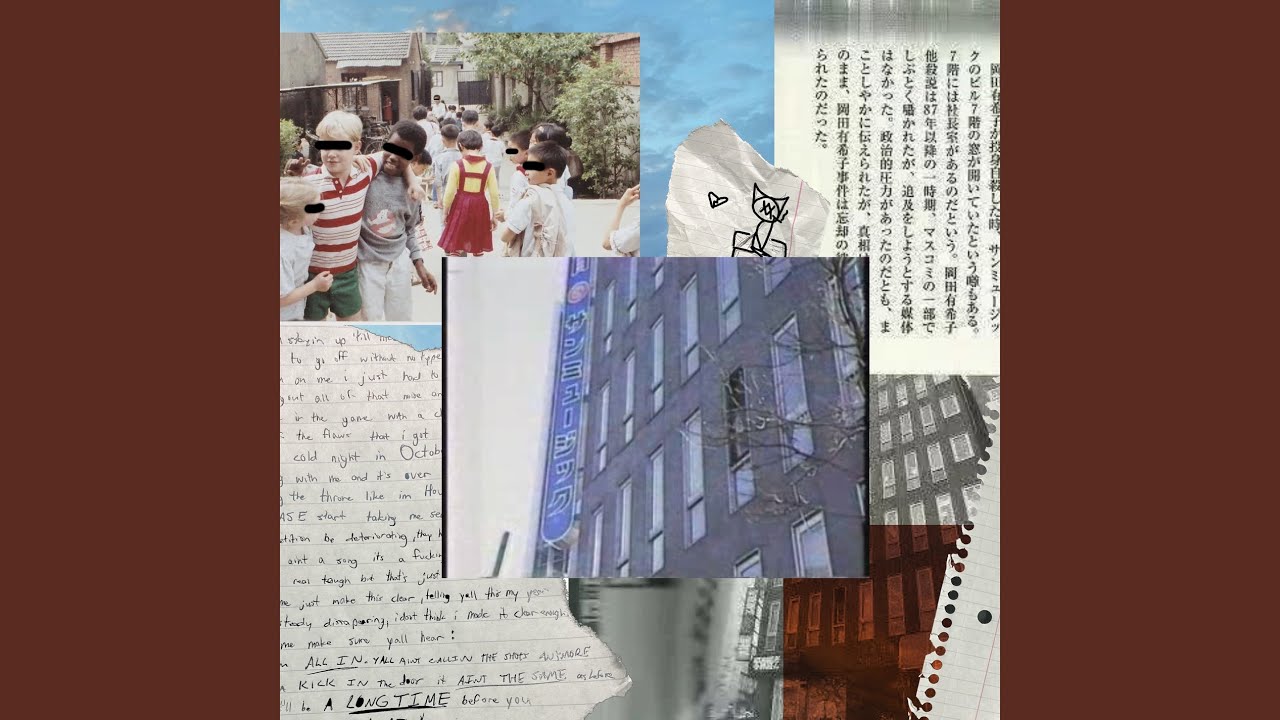 岡田有希子が投身自殺した時、サンミュージッ
クのビル7階の窓が開いていたという噂もある。
7階には社長室があるのだという。岡田有希子
他殺説は87年以降の一時期、マスコミの一部で
しぶとく囁かれたが、追及をしようとする媒体
はなかった。政治的圧力があったのだとも、ま
ことしやかに伝えられたが、真相は
のまま、岡田有希子事件は忘却の
られたのだった。
サンミュージック
stayin up 'till
to go off without no type
on me i just had to
out all of that
in the game with a
the flaws that i got
cold night in Octob
with me and it's over
the throne like im Hov
ASE start taking me se
tition be deteriorating, they
aint a song its a fuckin
real tough but that's just
me just make this clear, telling yall this my year
steady dissapearing, i dont think i made it clear enough
me make sure yall hear:
ALL IN. YALL AINT CALLIN THE SHOTS ANYMORE
KICK IN The door it AINT THE SAME as before
ll be A LONG TIME before you